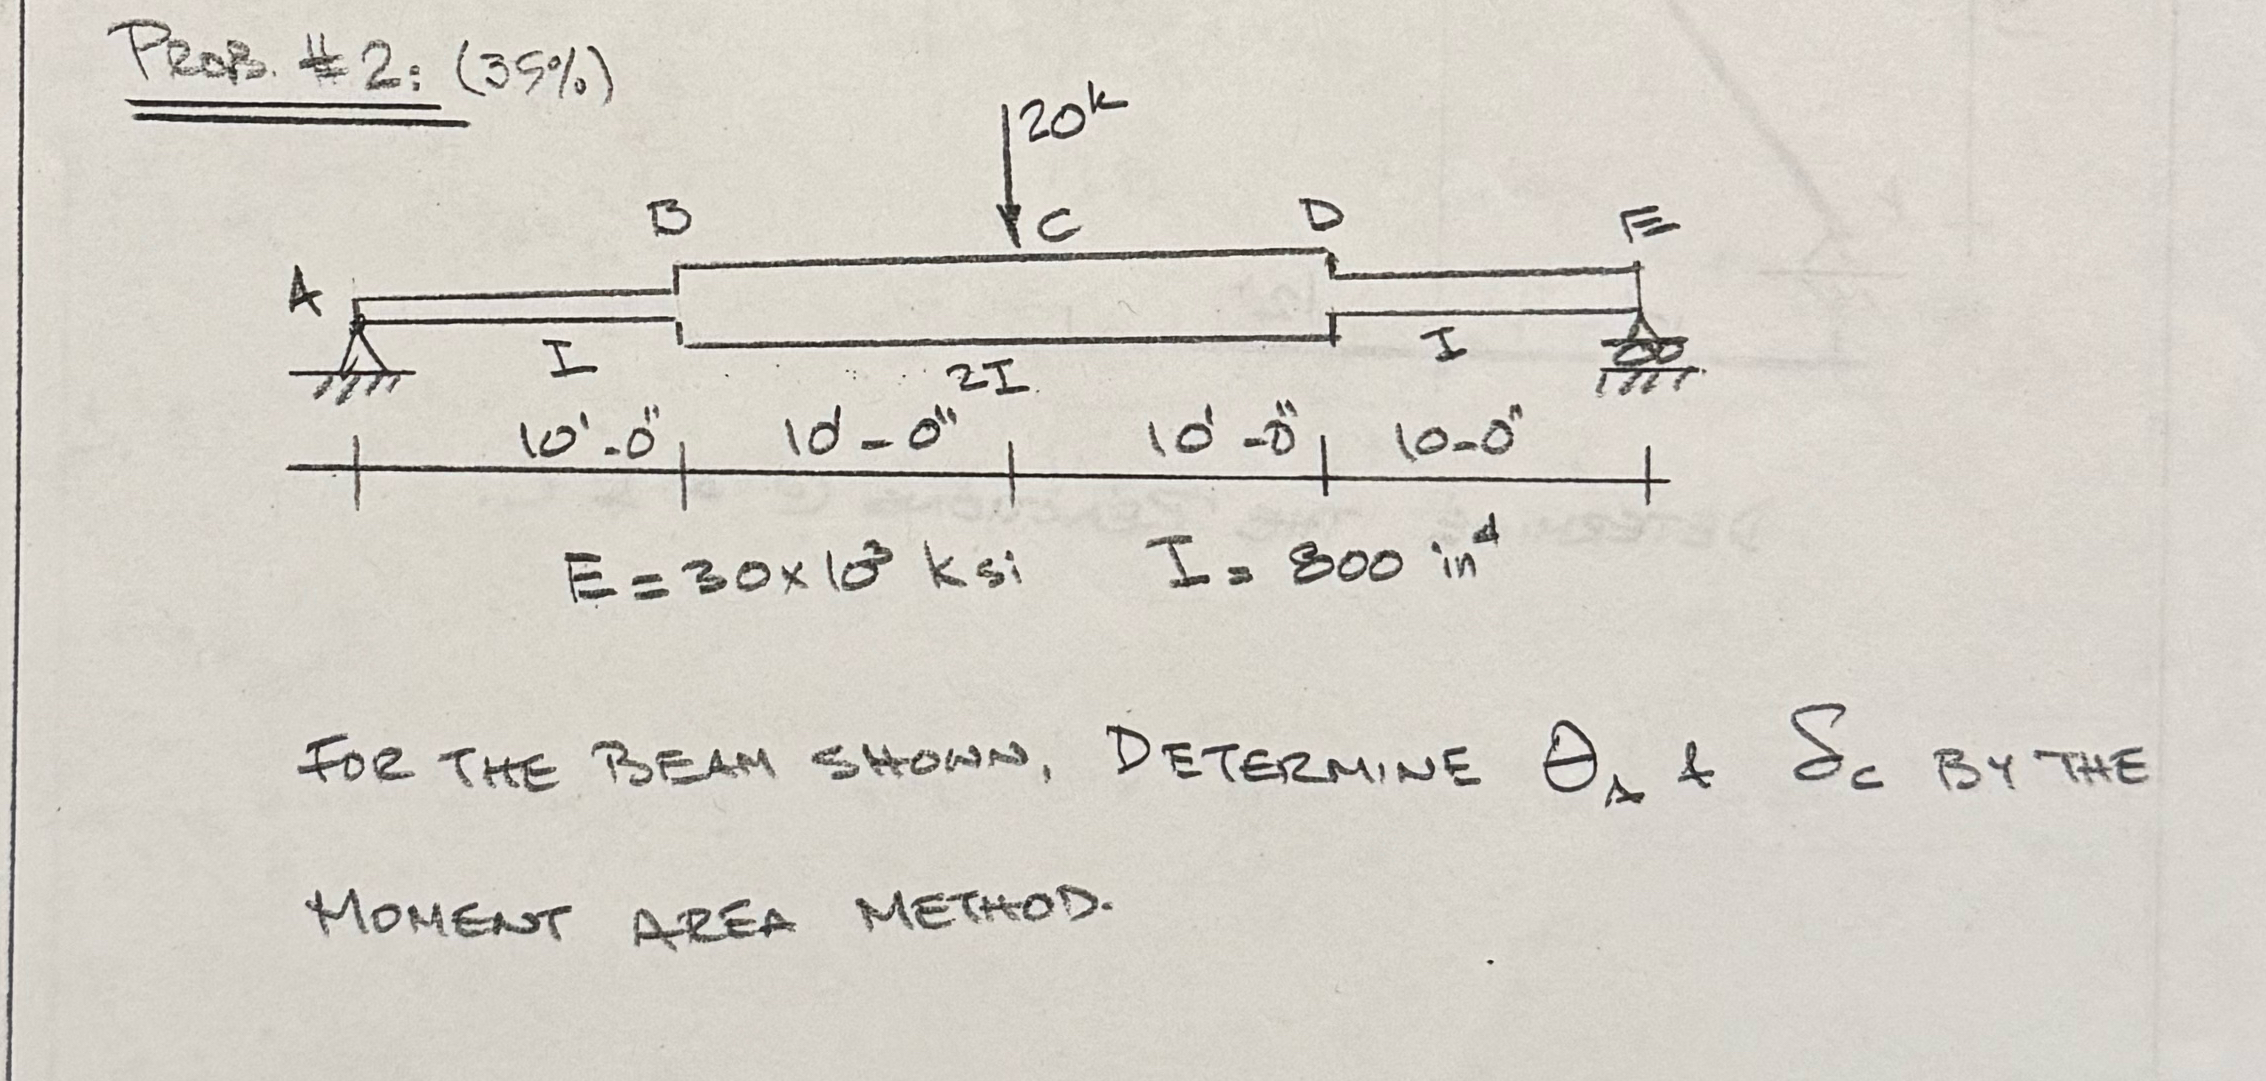 PROB. #2: (35%)
20k
B C D E
A
I 2I I
10'-0" 10'-0" 10'-0" 10-0"
E = 30x10³ ksi I = 800 in⁴
FOR THE BEAM SHOWN, DETERMINE θA & δC BY THE
MOMENT AREA METHOD.